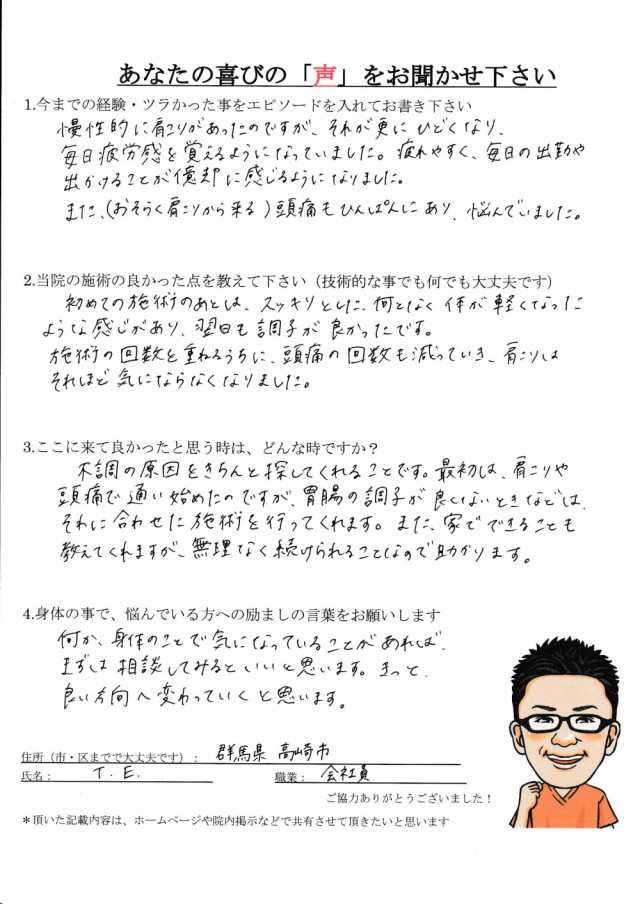 あなたの喜びの「声」をお聞かせ下さい
1.今までの経験・ツラかった事をエピソードを入れてお書き下さい
慢性的に肩こりがあったのですが、それが更にひどくなり、
毎日疲労感を覚えるようになっていました。疲れやすく、毎日の出勤や
出かけることが億却に感じるようになりました。
また、(おそらく肩こりから来る)頭痛もひんぱんにあり、悩んでいました。
2.当院の施術の良かった点を教えて下さい（技術的な事でも何でも大丈夫です）
初めての施術のあとは、スッキリとした、何となく体が軽くなった
ような感じがあり、翌日も調子が良かったです。
施術の回数を重ねるうちに、頭痛の回数も減っていき、肩こりは
それほど気にならなくなりました。
3.ここに来て良かったと思う時は、どんな時ですか？
不調の原因をきちんと探してくれることです。最初は、肩こりや
頭痛で通い始めたのですが、胃腸の調子が良くないときなどは、
それに合わせた施術を行ってくれます。また、家でできることも
教えてくれますが、無理なく続けられることなので助かります。
4.身体の事で、悩んでいる方への励ましの言葉をお願いします
何か、身体のことで気になっていることがあれば、
まずは相談してみるといいと思います。きっと、
良い方向へ変わっていくと思います。
住所（市・区までで大丈夫です）： 群馬県 高崎市
氏名： T.E. 職業： 会社員
ご協力ありがとうございました！
＊頂いた記載内容は、ホームページや院内掲示などで共有させて頂きたいと思います